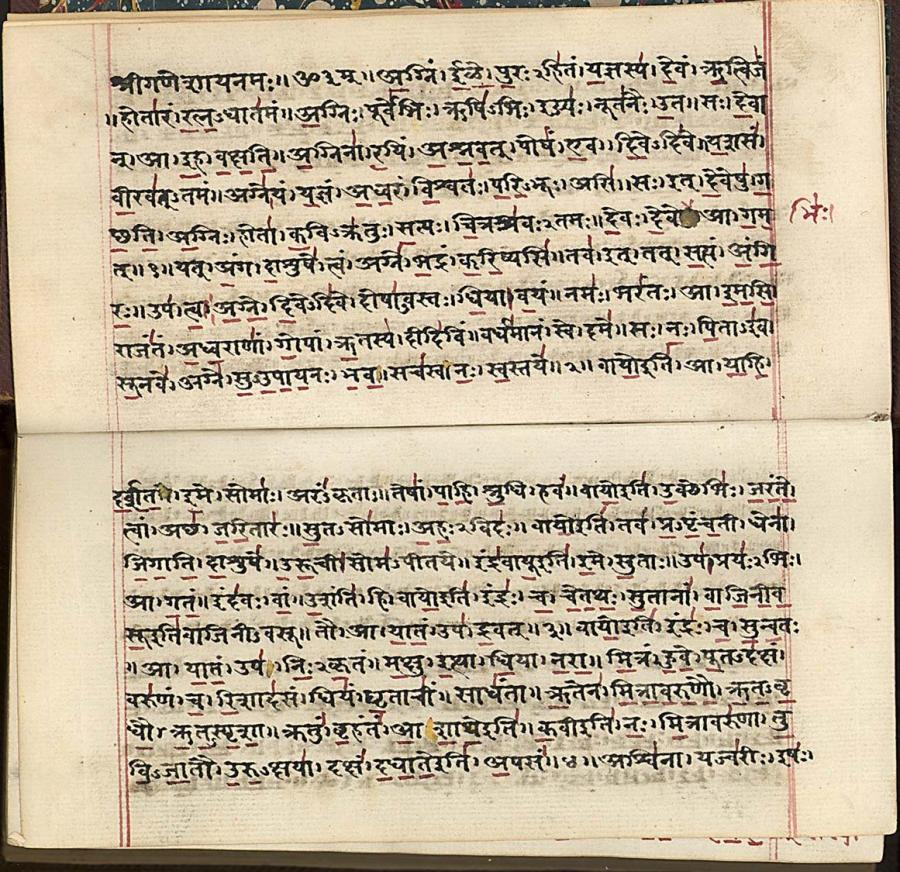 श्रीगणेशायनमः॥ॐ३म्॥अग्निं।ईळे।पुरःऽहितं।यज्ञस्य।देवं।ऋत्विजं
॥होतारं।रत्नऽधातमं॥अग्निः।पूर्वेभिः।ऋषिऽभिः।ईड्यः।नूतनैः।उत॥सः।देवा
न्।आ।इह।वक्षति॥अग्निना।रयिं।अश्नवत्।पोषं।एव।दिवेऽदिवे॥यशसं।
वीरवत्ऽतमं॥अग्ने।यं।यज्ञं।अध्वरं।विश्वतः।परिऽभूः।असि॥सः।इत्।देवेषु।ग
छति॥अग्निः।होता।कविऽक्रतुः।सत्यः।चित्रश्रवःऽतमः॥देवः।देवे।आ।गम
भिः।
त्॥१॥यत्।अंग।दाशुषे।त्वं।अग्ने।भद्रं।करिष्यसि॥तव।इत्।तत्।सत्यं।अंगि
रः॥उप।त्वा।अग्ने।दिवेऽदिवे।दोषाऽवस्तः।धिया।वयं॥नमः।भरंतः।आ।इमसि।
राजंतं।अध्वराणां।गोपां।ऋतस्य।दीदिविं॥वर्धमानं।स्वे।दमे॥सः।नः।पिताऽइव।
सूनवे।अग्ने।सुऽउपायनः।भव॥सचस्व।नः।स्वस्तये॥२॥वायोइति।आ।याहि।
दर्शत।इमे।सोमाः।अरंऽकृताः॥तेषां।पाहि।श्रुधि।हवं॥वायोइति।उक्थेभिः।जरंते।
त्वां।अछ।जरितारः॥सुतऽसोमाः।अहःऽविदः॥वायोइति।तव।प्रऽपृंचती।धेना।
जिगाति।दाशुषे॥उरूची।सोमऽपीतये॥इंद्रवायूइति।इमे।सुताः॥उप।प्रयःऽभिः।
आ।गतं॥इंदवः।वां।उशंति।हि॥वायोइति।इंद्रः।च।चेतथः।सुतानां।वाजिनीव
सूइतिवाजिनीऽवसू॥तौ।आ।यातं।उप।द्रवत्॥३॥वायोइति।इंद्रः।च।सुन्वतः
॥आ।यातं।उप।निःऽकृतं॥मक्षु।इत्था।धिया।नरा॥मित्रं।हुवे।पूतऽदक्षं।
वरुणं।च।रिशादसं॥धियं।घृताचीं।साधंता॥ऋतेन।मित्रावरुणौ।ऋतऽवृ
धौ।ऋतऽस्पृशा॥क्रतुं।बृहंतं।आशाथेइति॥कवीइति।नः।मित्रावरुणा।तु
विऽजातौ।उरुऽक्षया।दक्षं।दधातेइति।अपसं॥४॥अश्विना।यज्वरीः।इषः।